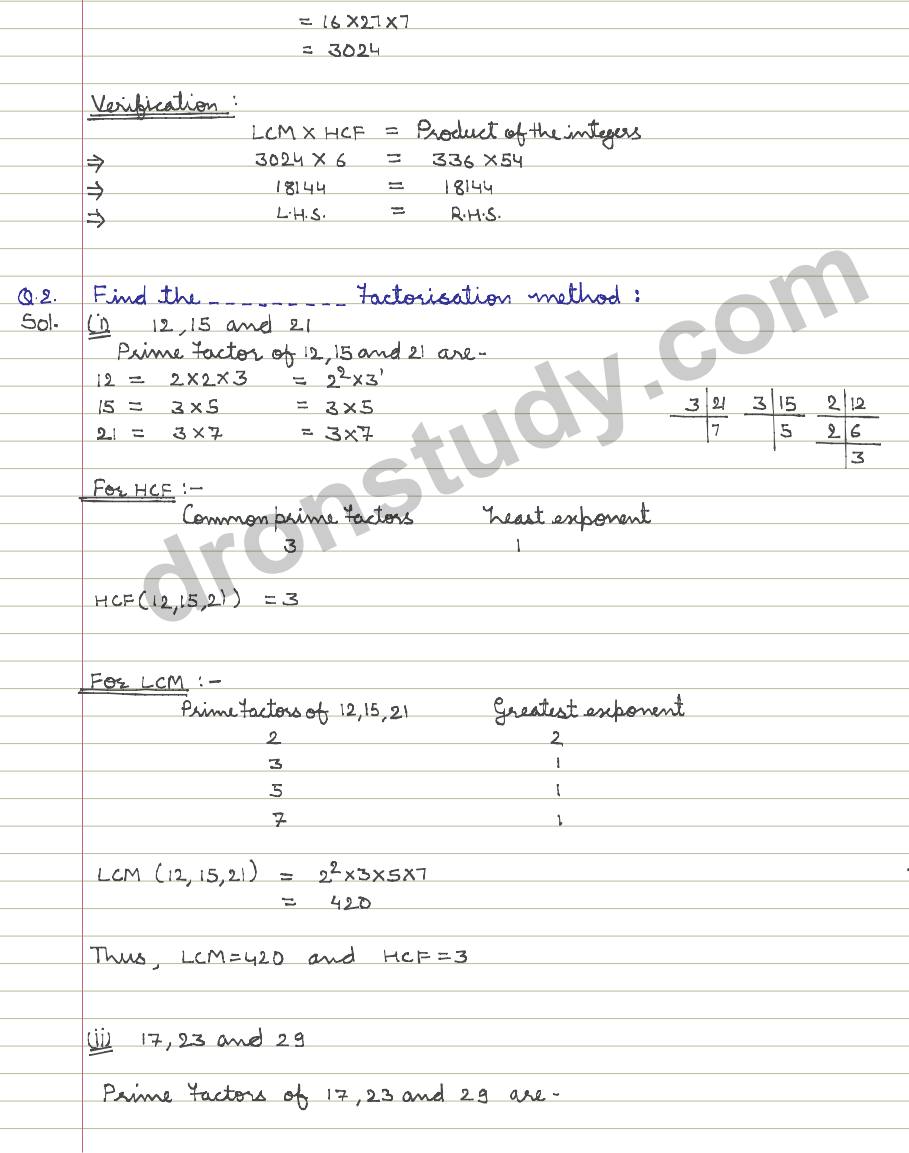 = 16 × 27 × 7
= 3024
Verification :
LCM × HCF = Product of the integers
⇒ 3024 × 6 = 336 × 54
⇒ 18144 = 18144
⇒ L.H.S. = R.H.S.
Q.2. Find the _ _ _ _ _ _ _ _ _ Factorisation method :
Sol. (i) 12, 15 and 21
Prime Factor of 12, 15 and 21 are -
12 = 2 × 2 × 3 = 2² × 3¹
15 = 3 × 5 = 3 × 5
21 = 3 × 7 = 3 × 7
3 | 21 3 | 15 2 | 12
7 5 2 | 6
3
For HCF :-
Common prime Factors Least exponent
3 1
HCF (12, 15, 21) = 3
For LCM :-
Prime Factors of 12, 15, 21 Greatest exponent
2 2
3 1
5 1
7 1
LCM (12, 15, 21) = 2² × 3 × 5 × 7
= 420
Thus, LCM = 420 and HCF = 3
(ii) 17, 23 and 29
Prime Factors of 17, 23 and 29 are -
dronstudy.com